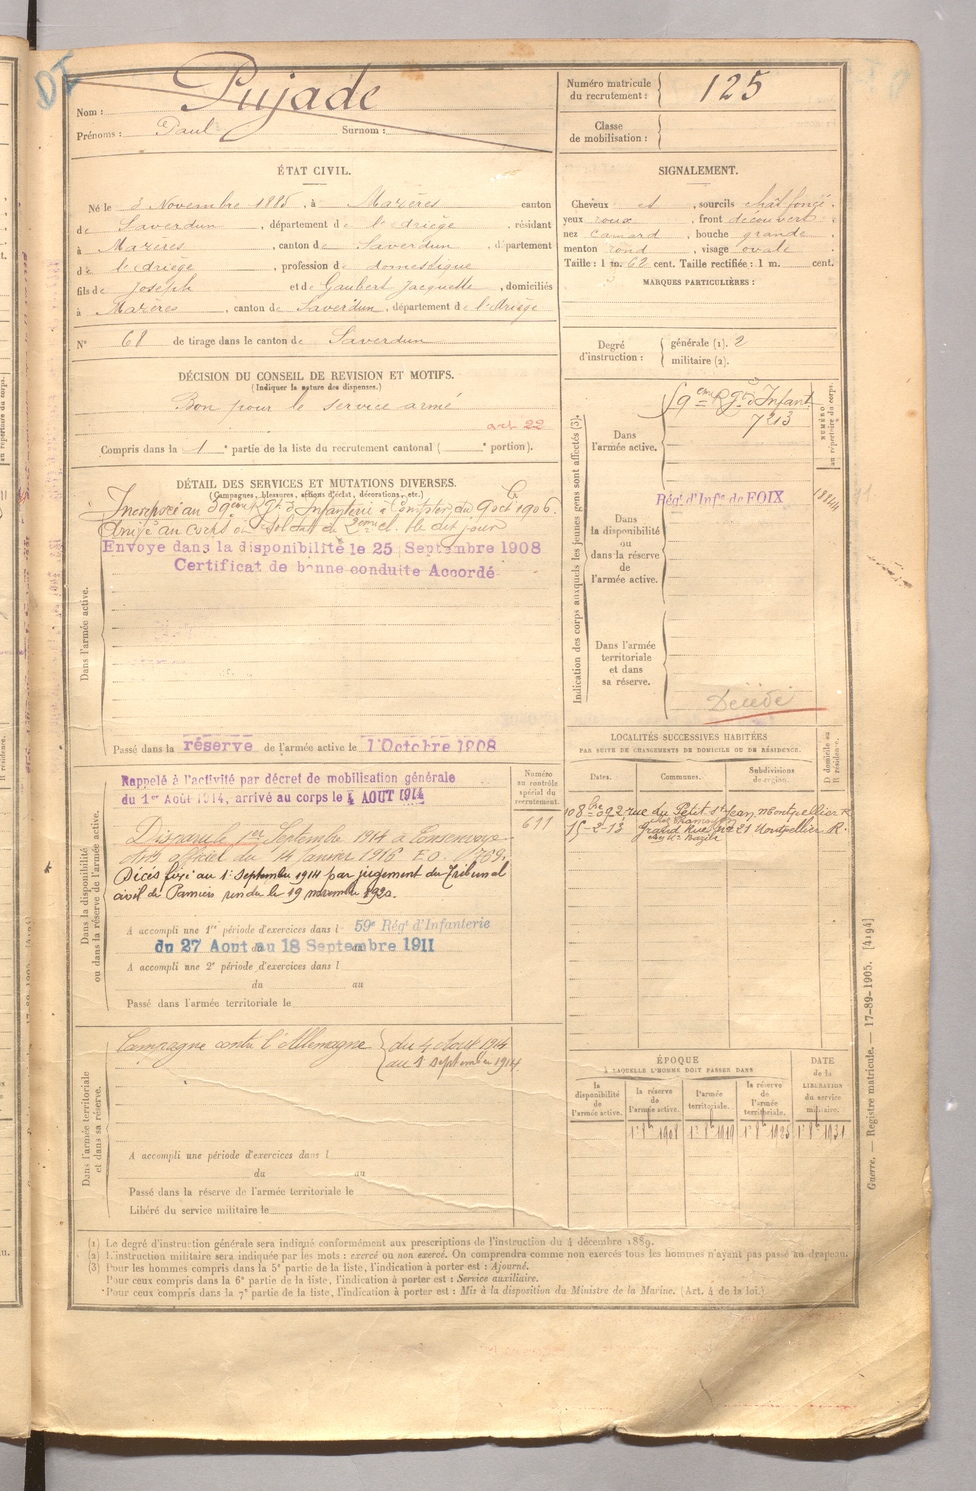 DI
Nom : Pujade
Prénoms : Paul Surnom :
Numéro matricule du recrutement : 125
Classe de mobilisation :
ÉTAT CIVIL.
Né le 3 Novembre 1885, à Mazères canton
de Saverdun, département de l'Ariège, résidant
à Mazères, canton de Saverdun, département
de l'Ariège, profession de domestique
fils de Joseph et de Gaubert Jacquette, domiciliés
à Mazères, canton de Saverdun, département de l'Ariège
N° 61 de tirage dans le canton de Saverdun
SIGNALEMENT.
Cheveux et, sourcils chat foncé
yeux roux, front découvert
nez camard, bouche grande
menton rond, visage ovale
Taille : 1 m. 62 cent. Taille rectifiée : 1 m. cent.
MARQUES PARTICULIÈRES :
Degré d'instruction : générale (1). 2
militaire (2).
DÉCISION DU CONSEIL DE REVISION ET MOTIFS.
(Indiquer la nature des dispenses.)
Bon pour le service armé
art. 22
Compris dans la 1 e partie de la liste du recrutement cantonal ( e portion).
DÉTAIL DES SERVICES ET MUTATIONS DIVERSES.
(Campagnes, blessures, actions d'éclat, décorations, etc.)
Dans l'armée active.
Incorporé au 59ème Rgt d'Infanterie à compter du 9 octobre 1906.
Arrivé au corps et soldat de 2ème cl. le dit jour
Envoyé dans la disponibilité le 25 Septembre 1908
Certificat de bonne conduite Accordé
Passé dans la réserve de l'armée active le 1 Octobre 1908
Indication des corps auxquels les jeunes gens sont affectés (3).
NUMÉRO au répertoire du corps.
Dans l'armée active. 59eme Rgt d'Infant.
7213
Dans la disponibilité ou dans la réserve de l'armée active.
Régt d'Infie de FOIX
Dans l'armée territoriale et dans sa réserve.
Décédé
Dans la disponibilité ou dans la réserve de l'armée active.
Numéro au contrôle spécial du recrutement.
611
Rappelé à l'activité par décret de mobilisation générale
du 1er Août 1914, arrivé au corps le 4 AOUT 1914
Disparu le 1er Septembre 1914 à Consenvoye
Avis officiel du 14 janvier 1916 E.O. 1769.
Décès fixé au 1er Septembre 1914 par jugement du Tribunal
civil de Pamiers rendu le 19 novembre 1920.
A accompli une 1re période d'exercices dans l 59e Régt d'Infanterie
du 27 Aout au 18 Septembre 1911
A accompli une 2e période d'exercices dans l
du au
Passé dans l'armée territoriale le
LOCALITÉS SUCCESSIVES HABITÉES
PAR SUITE DE CHANGEMENTS DE DOMICILE OU DE RÉSIDENCE.
Dates. Communes. Subdivisions de région. D domicile ou R résidence.
rue du Petit St Jean Montpellier R
15-2-13 Grand Rue No 21 Montpellier R.
Dans l'armée territoriale et dans sa réserve.
Campagne contre l'Allemagne du 4 Aout 1914
au 1 Septembre 1914.
A accompli une période d'exercices dans l
du au
Passé dans la réserve de l'armée territoriale le
Libéré du service militaire le
ÉPOQUE
À LAQUELLE L'HOMME DOIT PASSER DANS
DATE de la LIBÉRATION du service militaire.
la disponibilité de l'armée active.
la réserve de l'armée active.
l'armée territoriale.
la réserve de l'armée territoriale.
1er 8bre 1908 1er 8bre 1919 1er 8bre 1925 1er 8bre 1931
(1) Le degré d'instruction générale sera indiqué conformément aux prescriptions de l'instruction du 4 décembre 1889.
(2) L'instruction militaire sera indiquée par les mots : exercé ou non exercé. On comprendra comme non exercés tous les hommes n'ayant pas passé au drapeau.
(3) Pour les hommes compris dans la 5e partie de la liste, l'indication à porter est : Ajourné.
Pour ceux compris dans la 6e partie de la liste, l'indication à porter est : Service auxiliaire.
Pour ceux compris dans la 7e partie de la liste, l'indication à porter est : Mis à la disposition du Ministre de la Marine. (Art. 4 de la loi.)
Guerre. — Registre matricule. — 17-89-1905. [4194]